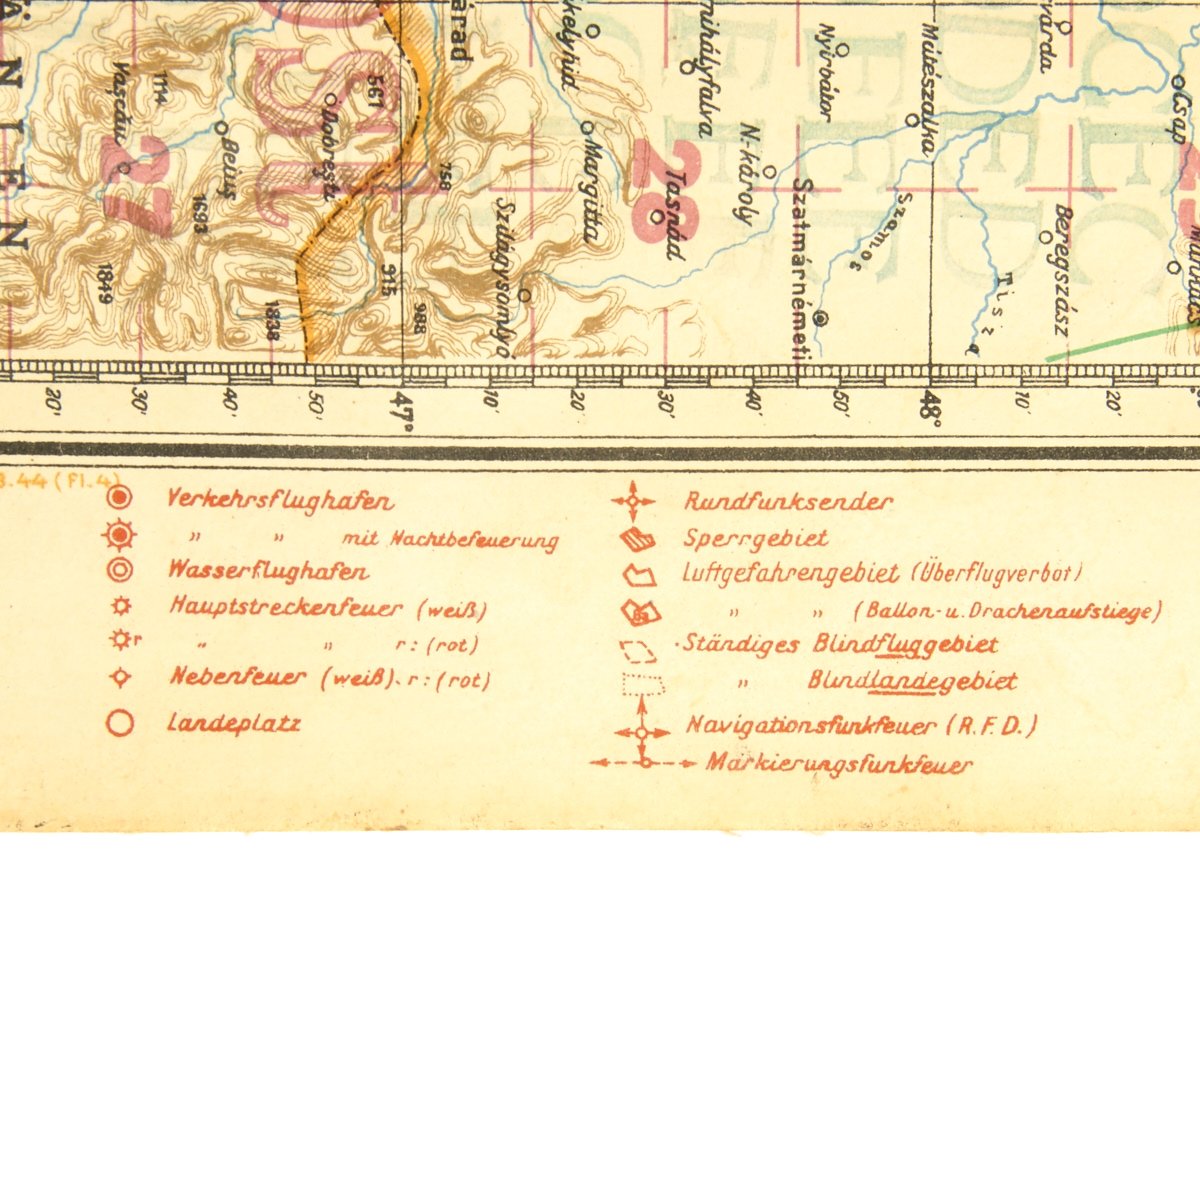 ÄNIEN
27
Vașcău
1114
Beiuș
1693
1849
561
Dobrești
1838
árad
758
915
988
Szilágysomlyó
Margitta
28
Tasnád
mihályfalva
N-károly
Nyírbátor
Szatmárnémeti
Szamos
Mátészalka
Tisza
várda
Beregszász
Csap
20'
30'
40'
50'
47°
10'
20'
30'
40'
50'
48°
10'
20'
3.44 (Fl.4)
Verkehrsflughafen
" " mit Nachtbefeuerung
Wasserflughafen
Hauptstreckenfeuer (weiß)
r " " r: (rot)
Nebenfeuer (weiß). r: (rot)
Landeplatz
Rundfunksender
Sperrgebiet
Luftgefahrengebiet (Überflugverbot)
" " (Ballon- u. Drachenaufstiege)
Ständiges Blindfluggebiet
" Blindlandegebiet
Navigationsfunkfeuer (R.F.D.)
Markierungsfunkfeuer